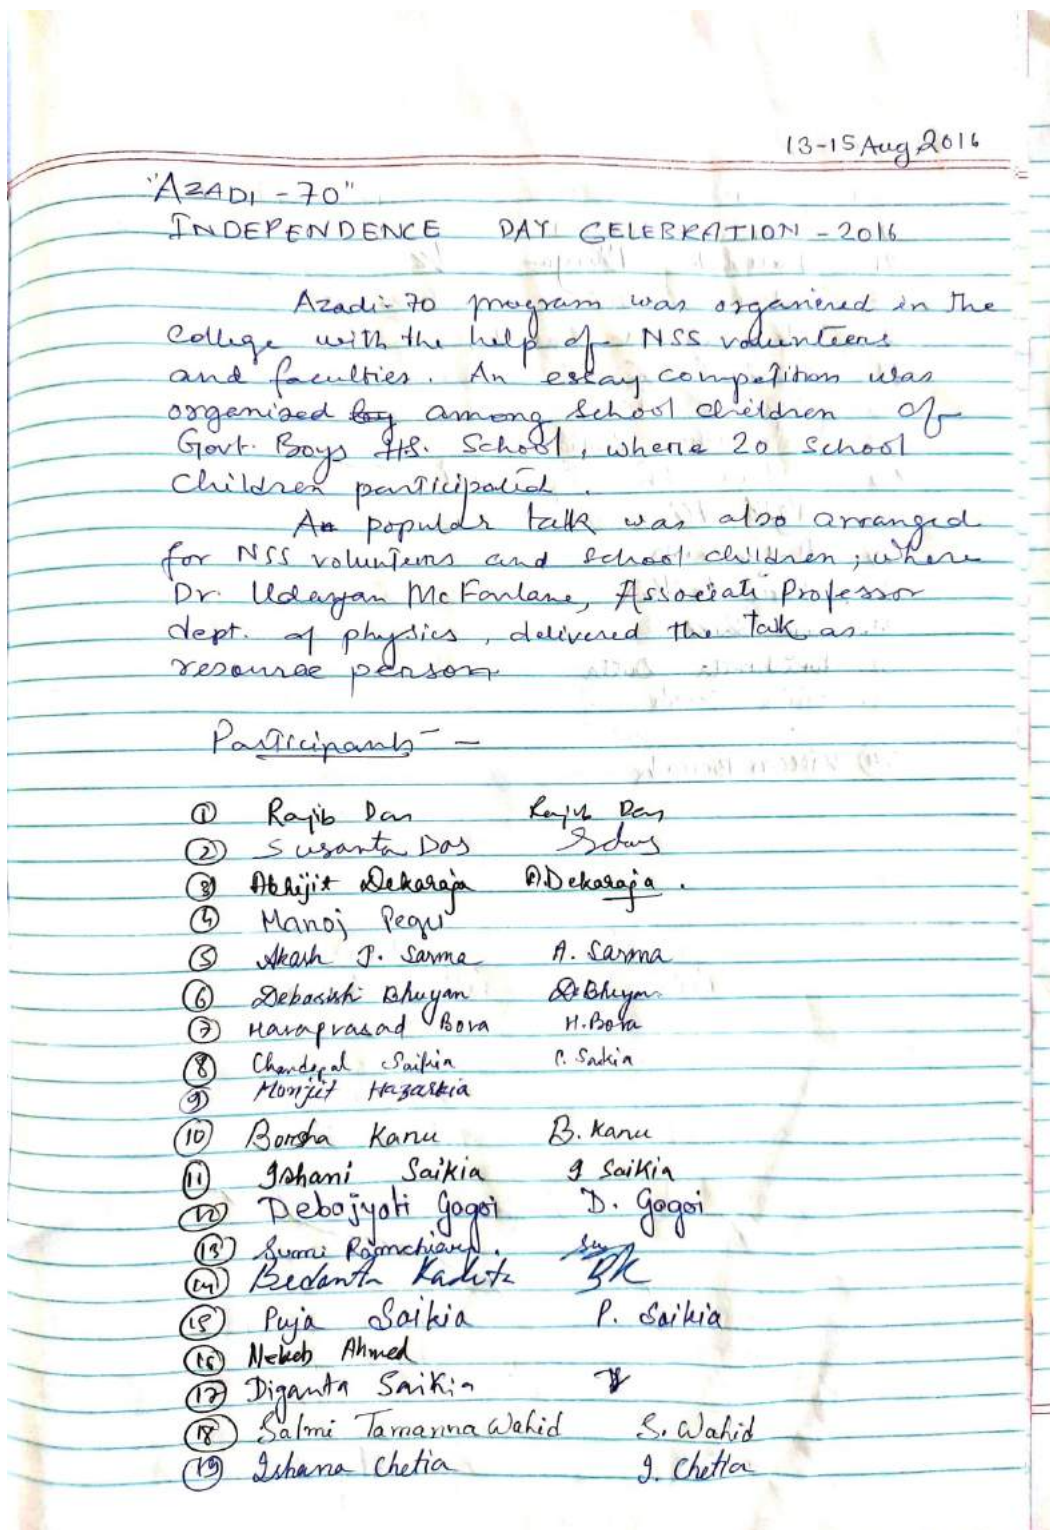 13-15 Aug 2016
"AZADI - 70"
INDEPENDENCE DAY CELEBRATION - 2016
Azadi-70 program was organised in the
College with the help of NSS volunteers
and faculties. An essay competition was
organised by among School children of
Govt. Boys HS. School, where 20 School
Children participated.
A popular talk was also arranged
for NSS volunteers and School children, where
Dr. Udayan McFarlane, Associate Professor
dept. of physics, delivered the talk as
resource person
Participants -
① Rajib Das Rajib Das
② Susanta Das SDas
③ Abhijit Dekaraja A Dekaraja.
④ Manoj Pegu
⑤ Akash P. Sarma A. Sarma
⑥ Debasish Bhuyan D Bhuyan
⑦ Haraprasad Bora H. Bora
⑧ Saikia C. Saikia
⑨ Monjit Hazarika
⑩ Borsha Kanu B. Kanu
⑪ Ishani Saikia I Saikia
⑫ Debojyoti Gogoi D. Gogoi
⑬ Sumi
⑭ Bedanta BK
⑮ Puja Saikia P. Saikia
⑯ Ahmed
⑰ Diganta Saikia
⑱ Salmi Tamanna Wahid S. Wahid
⑲ Ishana Chetia I. Chetia